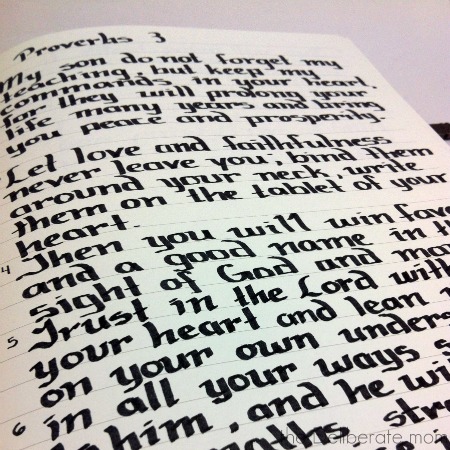 Proverbs 3
My son do not forget my
teaching, but keep my
commands in your heart.
for they will prolong your
life many years and bring
you peace and prosperity.
Let love and faithfulness
never leave you; bind them
around your neck, write
them on the tablet of your
heart.
4 Then you will win fav
and a good name in t
sight of God and ma
5 Trust in the Lord with
your heart and lean
on your own unders
6 in all your ways s
to him, and he wi
paths stra
the Deliberate mom